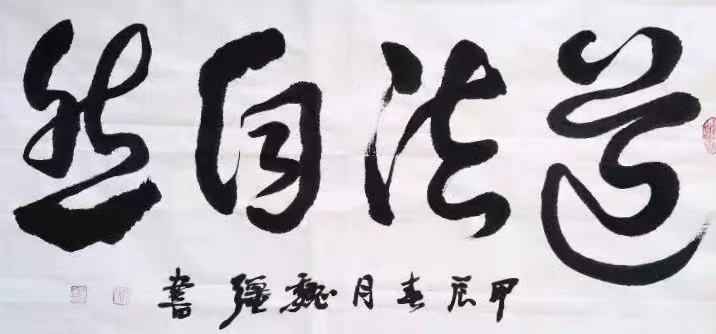 道法自然
甲辰春月魏疆書